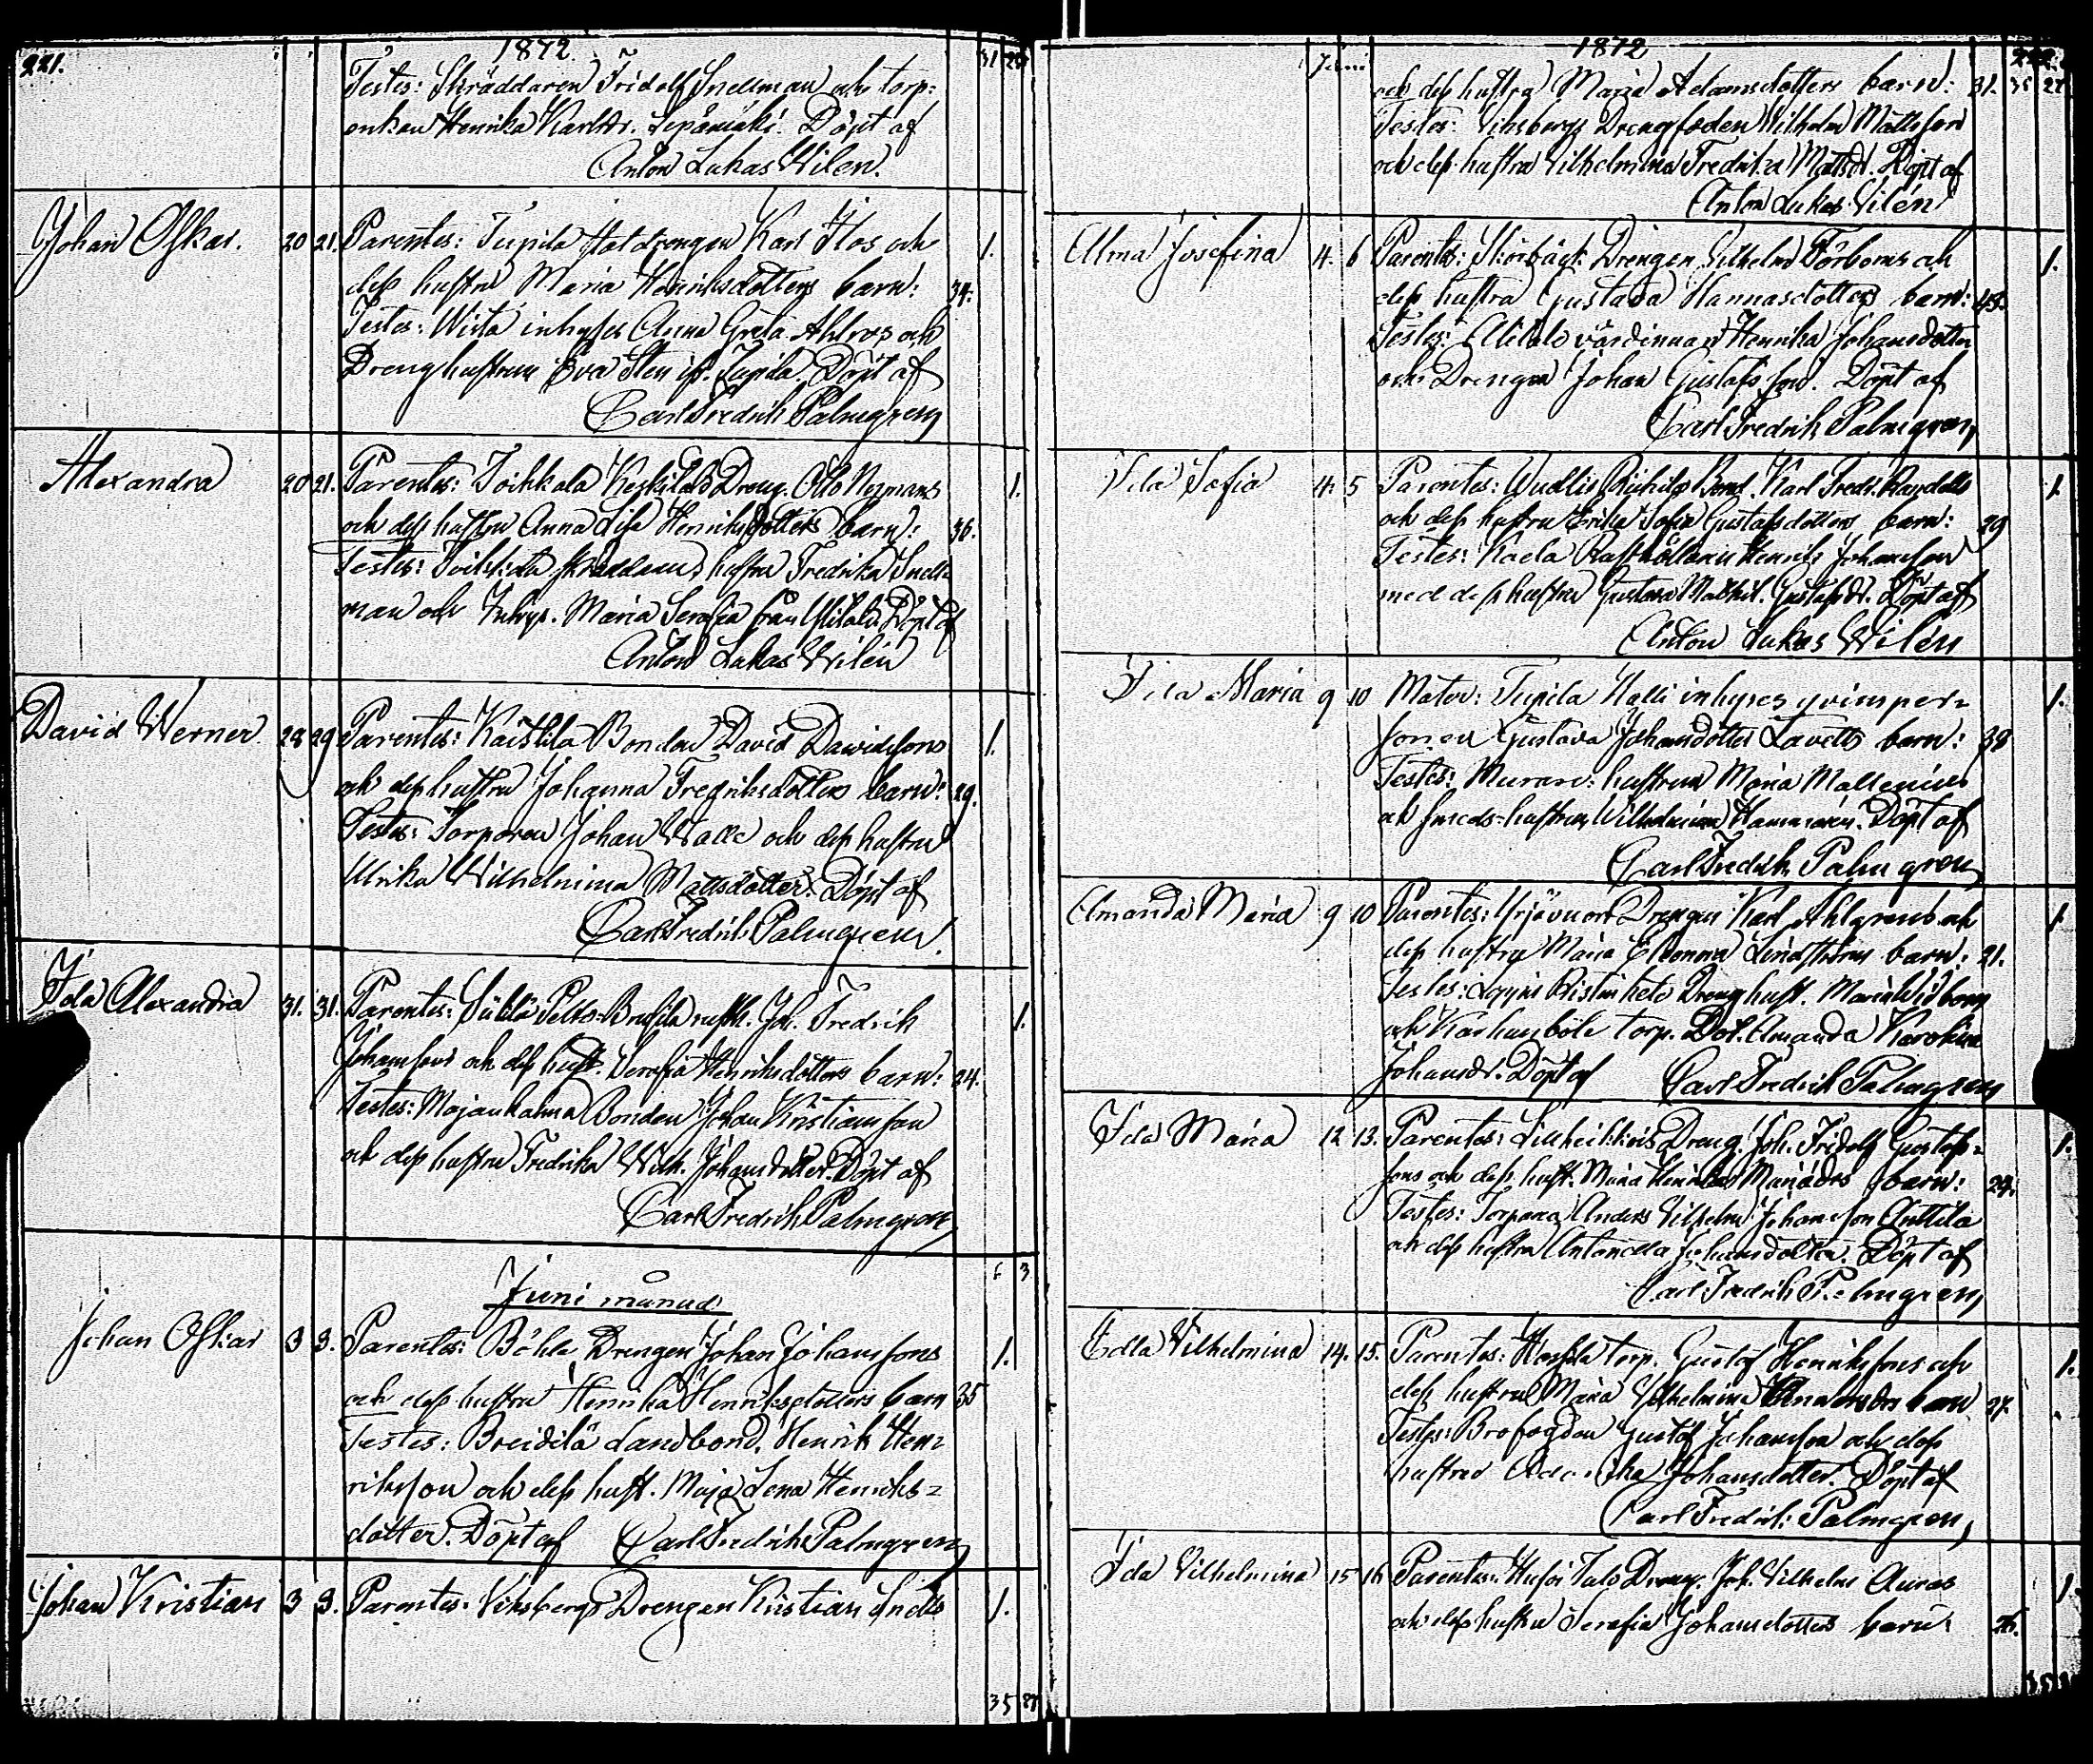 221.
1872.
31
Testes: Skräddaren Fridolf Snellman och torp-
enkan Henrika Karlsdr. Döpt af
Anton Lukas Wilen.
Johan Oskar. 20 21. Parentes: Tupila Karl och 1.
dess hustru Maria Henriksdotters barn: 34.
Testes: inhyses Anna Greta Ahlros och
Drenghustrun Eva Sten Tupila. Döpt af
Carl Fredrik Palmgren
Alexandra 20 21. Parentes: Toikkala Dreng. Otto Nymans 1.
och dess hustru Anna Lisa Henriksdotters barn: 36.
Testes: hustru Fredrika Snell-
man och Inhys. Maria Serafia från Ylitalo. Döpt af
Anton Lukas Wilén
David Werner 28 29 Parentes: Kaistila Bonden David Davidssons 1.
och dess hustru Johanna Fredriksdotters barn: 29.
Testes: Torparen Johan Walle och dess hustru
Ulrika Wilhelmina Mattsdotter. Döpt af
Carl Fredrik Palmgren.
Ida Alexandra 31. 31. Parentes: rusth. Joh. Fredrik 1.
Johanssons och dess hust. Serafia Henriksdotters barn: 24.
Testes: Majankalma Bonden Johan Kristiansson
och dess hustru Fredrika Wilh. Johansdotter. Döpt af
Carl Fredrik Palmgren
Juni månad
6 3
Johan Oskar 3 3. Parentes: Böhle Drengen Johan Johanssons 1.
och dess hustru Henrika Henriksdotters barn 35
Testes: Breidilä Landbond. Henrik Hen-
riksson och dess hust. Maja Lena Henriks-
dotter. Döpt af Carl Fredrik Palmgren
Johan Kristian 3 3. Parentes: Viksbergs Drengen Kristian 1.
35
1872
Juni
och dess hustru Maria Adamsdotters barn: 31. 35 27
Testes: Viksbergs Drengfogden Wilhelm Mattsson
och dess hustru Vilhelmina Fredrika Mattsdr. Döpt af
Anton Lukas Vilén
Alma Josefina 4. 6 Parentes: Drengen Vilhelm Törboms och 1.
dess hustru Gustava Hannasdotters barn: 43.
Testes: Alitalo värdinnan Henrika Johansdotter
och Drengen Johan Gustafsson. Döpt af
Carl Fredrik Palmgren
Ida Sofia 4. 5 Parentes: Bond. Karl Fredr. 1
och dess hustru Erika Sofia Gustafsdotters barn: 29
Testes: Kaela Rusthållaren Henrik Johansson
med dess hustru Gustava Mathil. Gustafsdr. Döpt af
Anton Lukas Wilén
Ida Maria 9 10 Mater: Tupila Halli inhyses qvinsper- 1.
sonen Gustava Johansdotter Lavetts barn: 38
Testes: Murare-hustrun Maria Mallenius
och smeds-hustrun Wilhelmina Hammarén. Döpt af
Carl Fredrik Palmgren
Amanda Maria 9 10 Parentes: Drengen Karl Ahlgrens och 1
dess hustru Maria Eleonora Lindströms barn: 21.
Testes: Drenghust. Maria Widbom
och Karhunböle torp. Dot. Amanda Karolina
Johansdr. Döpt af Carl Fredrik Palmgren
Ida Maria 12 13. Parentes: Lilleheikkiläs Dreng. Joh. Fridolf Gustafs- 1.
sons och dess hust. Maria Henrika Mariädrs barn:
Testes: Torparen Anders Vilhelm Johansson Anttila
och dess hustru Antonetta Johansdotter. Döpt af
Carl Fredrik Palmgren
Edla Vilhelmina 14. 15. Parentes: torp. Gustaf Henrikssons och 1.
dess hustru Maria Vilhelmina barn 27.
Testes: Brofogdan Gustaf Johansson och dess
hustru Johansdotter. Döpt af
Carl Fredrik Palmgren
Ida Vilhelmina 15 16 Parentes: Dreng. Joh. Vilhelm Auras 1.
och dess hustru Serafia Johansdotters barn: 26.